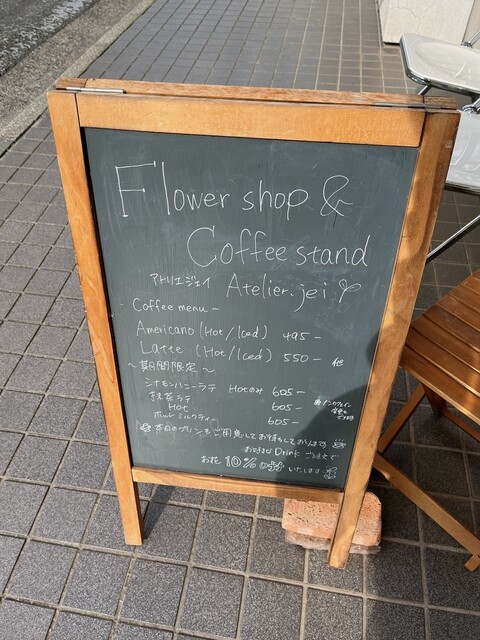 Flower shop &
Coffee stand
アトリエジェイ Atelier.jei
Coffee menu -
Americano (Hot/Iced) 495-
Latte (Hot/Iced) 550- 他
~期間限定~
シナモンハニーラテ Hotのみ 605-
抹茶ラテ 605-
Hot
ホットミルクティー 605-
本日のプリンもご用意してお待ちしております
お好きなDrinkご注文で
お花10%OFFいたします